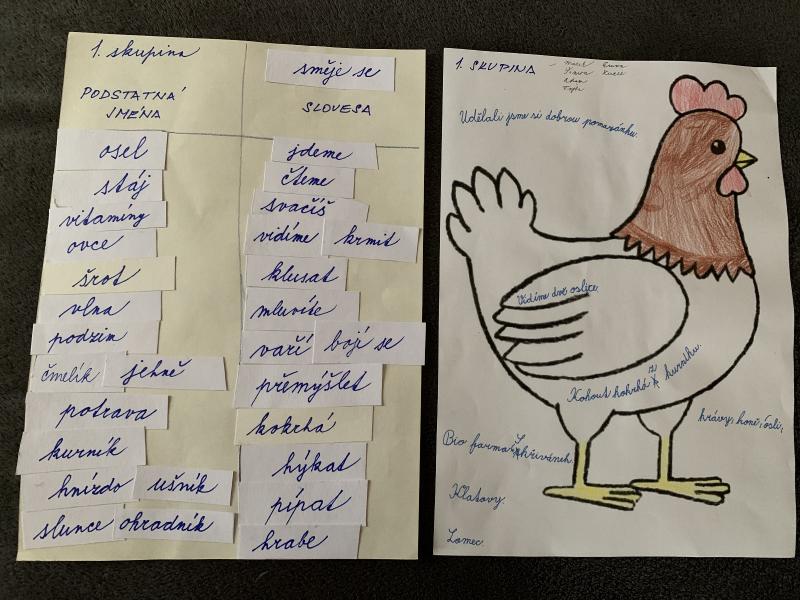 1. skupina
PODSTATNÁ
JMÉNA
osel
stáj
vitamíny
ovce
šrot
vlna
podzim
čmelík jehně
potrava
kurník
hnízdo ušník
slunce ohradník
směje se
SLOVESA
jdeme
čteme
svačíš
vidíme krmit
klusat
mluvíte
vaří bojí se
přemýšlet
kokrhá
hýkat
pípat
hrabe
1. SKUPINA
Udělali jsme si dobrou pomazánku.
Vidíme dvě oslice.
Kohout kokrhá z kurníku.
krávy, koně, osli,
Bio farma
Klatovy.
Lomec.